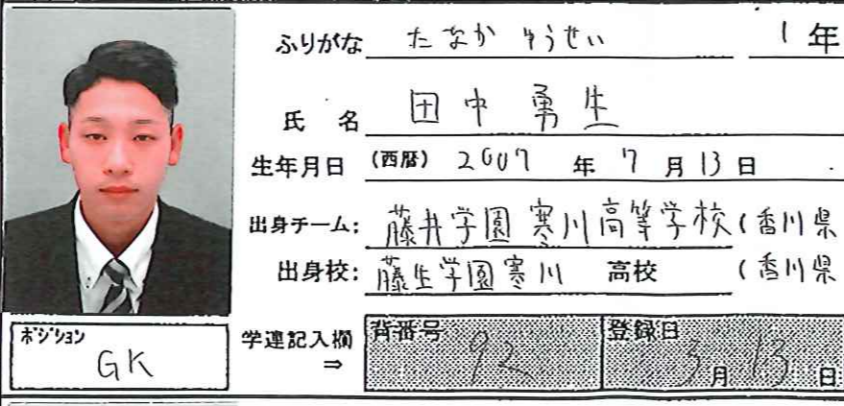 ふりがな たなか ゆうせい 1年
氏名 田中勇生
生年月日 (西暦) 2007年 7月13日
出身チーム: 藤井学園寒川高等学校 (香川県
出身校: 藤生学園寒川 高校 (香川県
ポジション GK
学連記入欄 ⇒ 背番号 92 登録日 3月13日